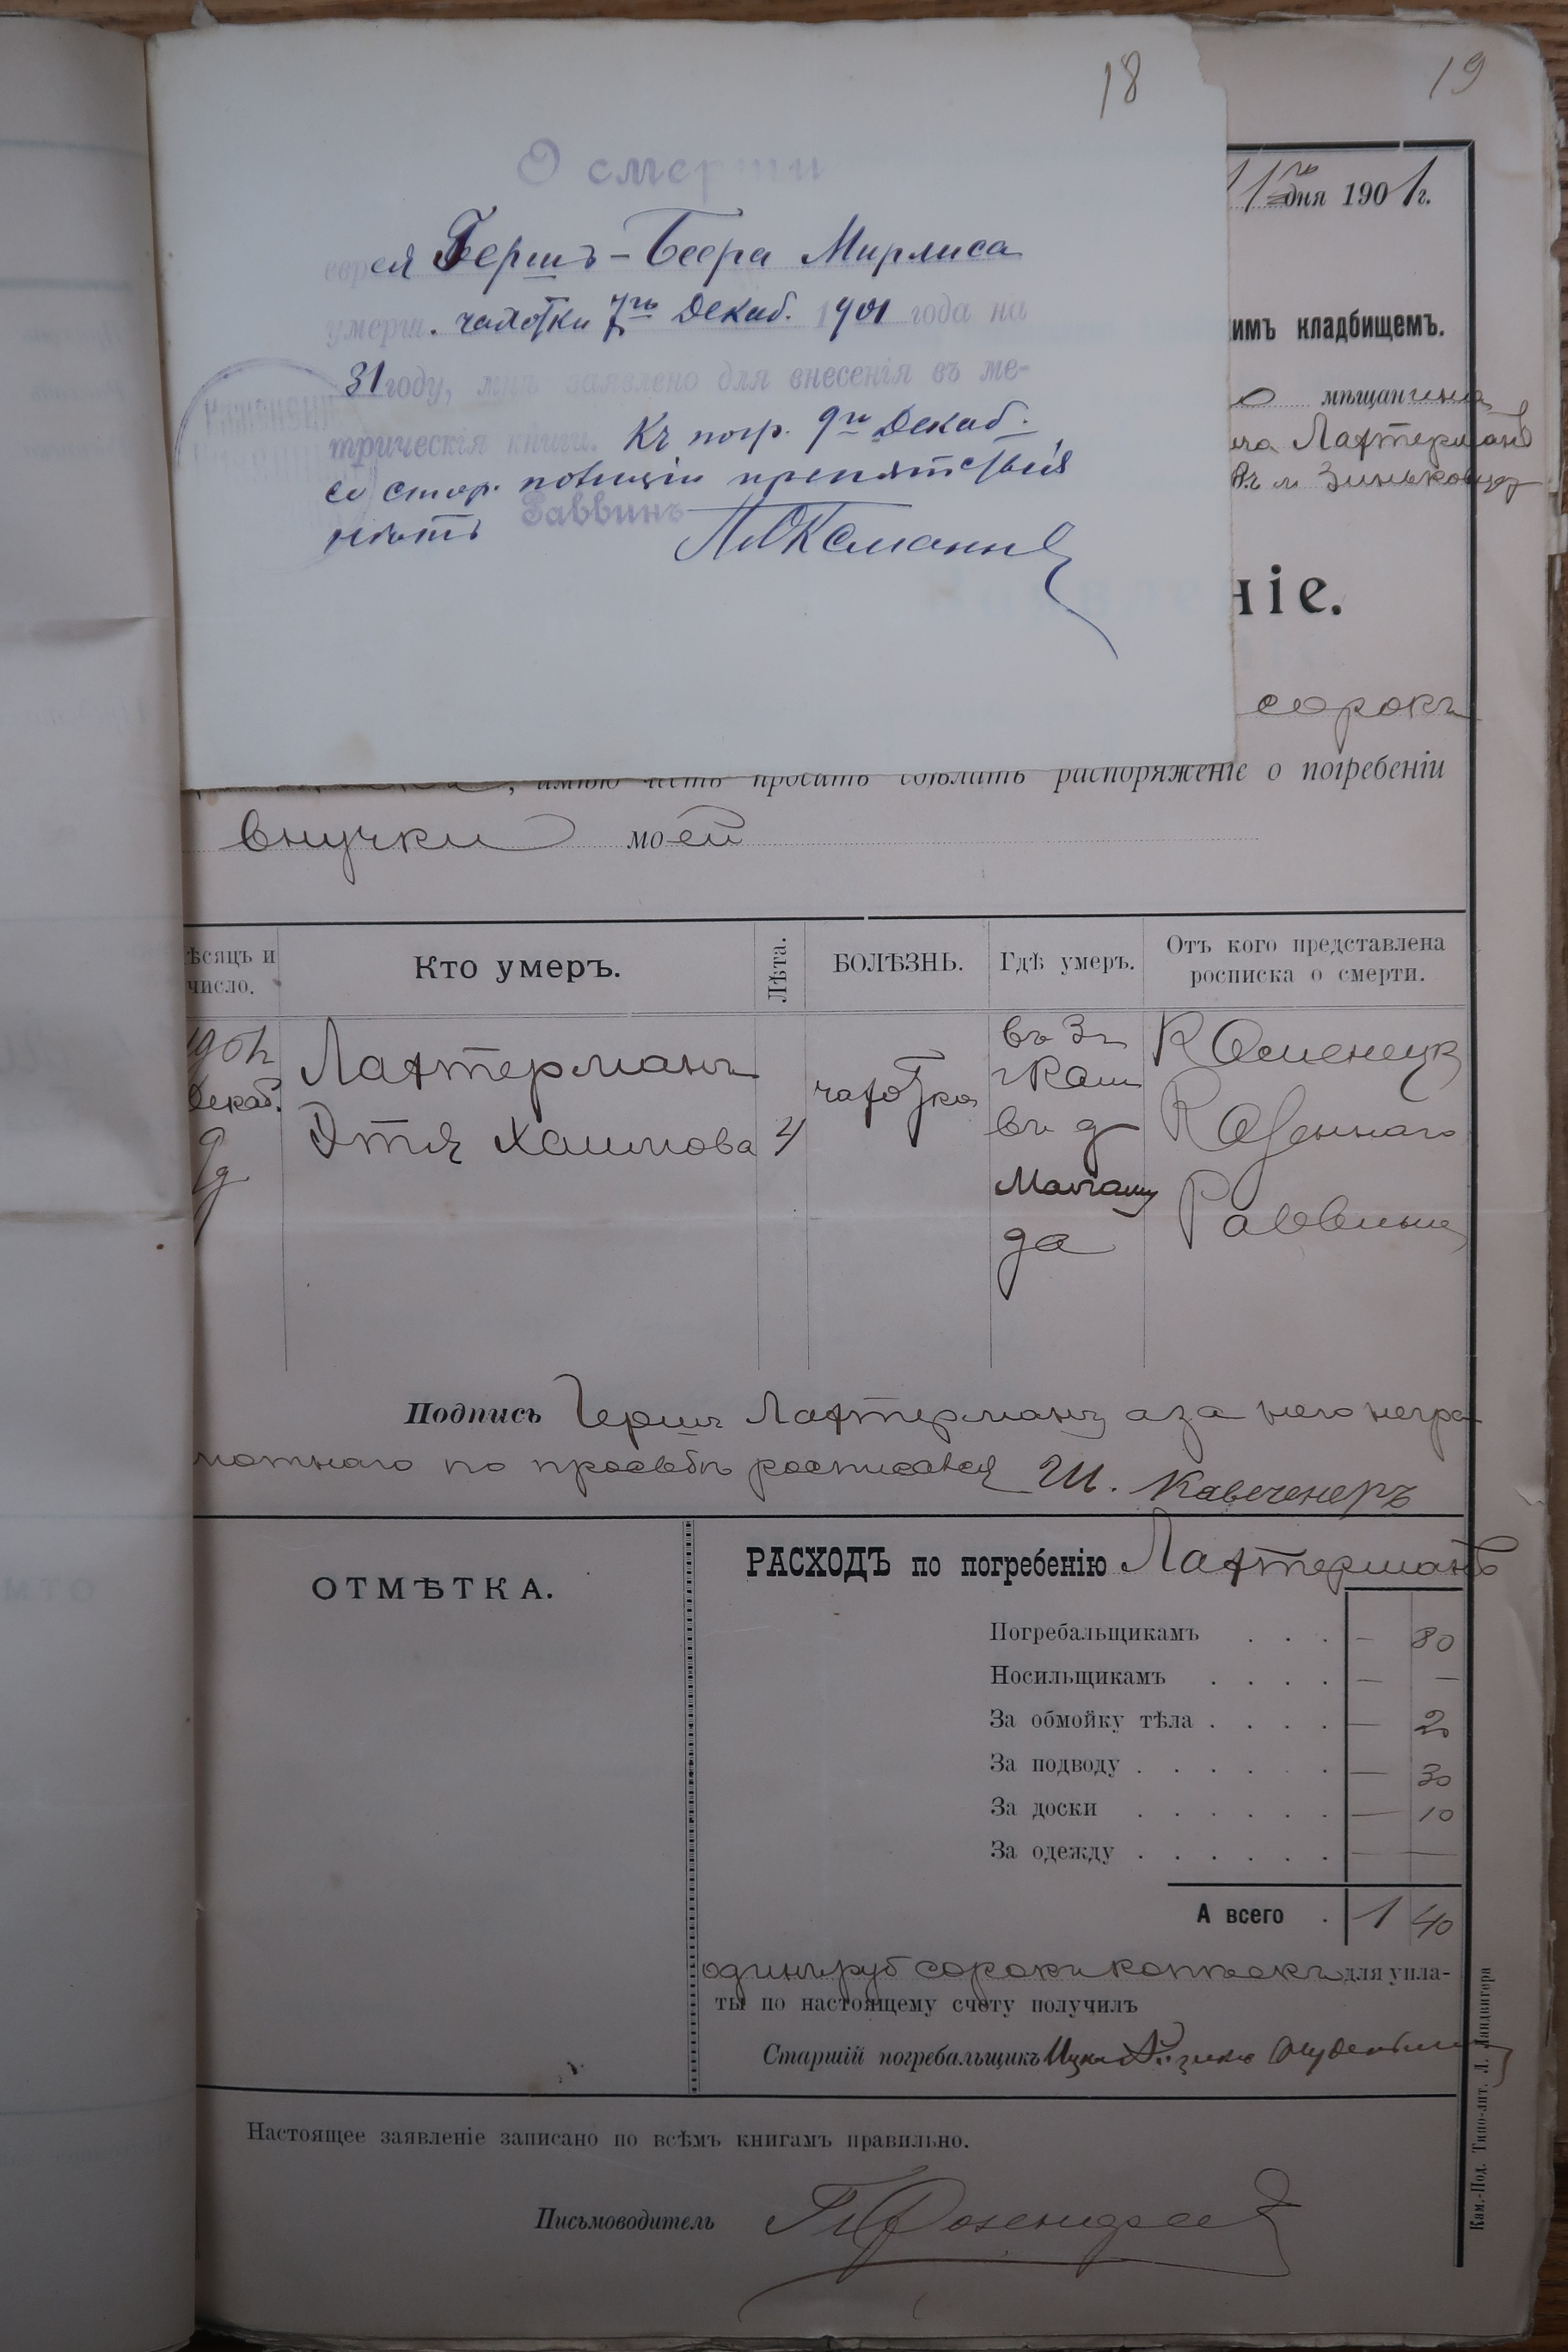 18
19
О смерти
еврея Гершъ-Беера Мирлиса
умерш. чахотки 7го Декаб. 1901 года на
31 году, мнѣ заявлено для внесенія въ ме-
трическія книги. Къ погр. 9го Декаб.
со стор. полиціи препятствія
нѣтъ Раввинъ
дня 1901г.
имъ кладбищемъ.
мѣщанина
Лахтерманъ
м Зиньковцы
ніе.
сорокъ
, имѣю честь просить сдѣлать распоряженіе о погребеніи
внучки моей
ѣсяцъ и число.
Кто умеръ.
Лѣта.
БОЛѢЗНЬ.
Гдѣ умеръ.
Отъ кого представлена росписка о смерти.
1901г
Декаб.
9д
Лахтерманъ
Этя Хаимова
4
чахотка
въ 3ч
г Кам
въ д
да
Каменецк
Казеннаго
Раввина
Подпись Гершъ Лахтерманъ а за него негра
мотнаго по просьбѣ росписался Ш.
ОТМѢТКА.
РАСХОДЪ по погребенію Лахтерманъ
Погребальщикамъ . . . — 80
Носильщикамъ . . . . — —
За обмойку тѣла . . . . — 20
За подводу . . . . . . — 30
За доски . . . . . . — 10
За одежду . . . . . . — —
А всего . 1 40
одинъ руб сорокъ копѣекъ для упла-
ты по настоящему счету получилъ
Старшій погребальщикъ
Настоящее заявленіе записано по всѣмъ книгамъ правильно.
Письмоводитель
Кам.-Под. Типо-лит. Л. Ландвигера